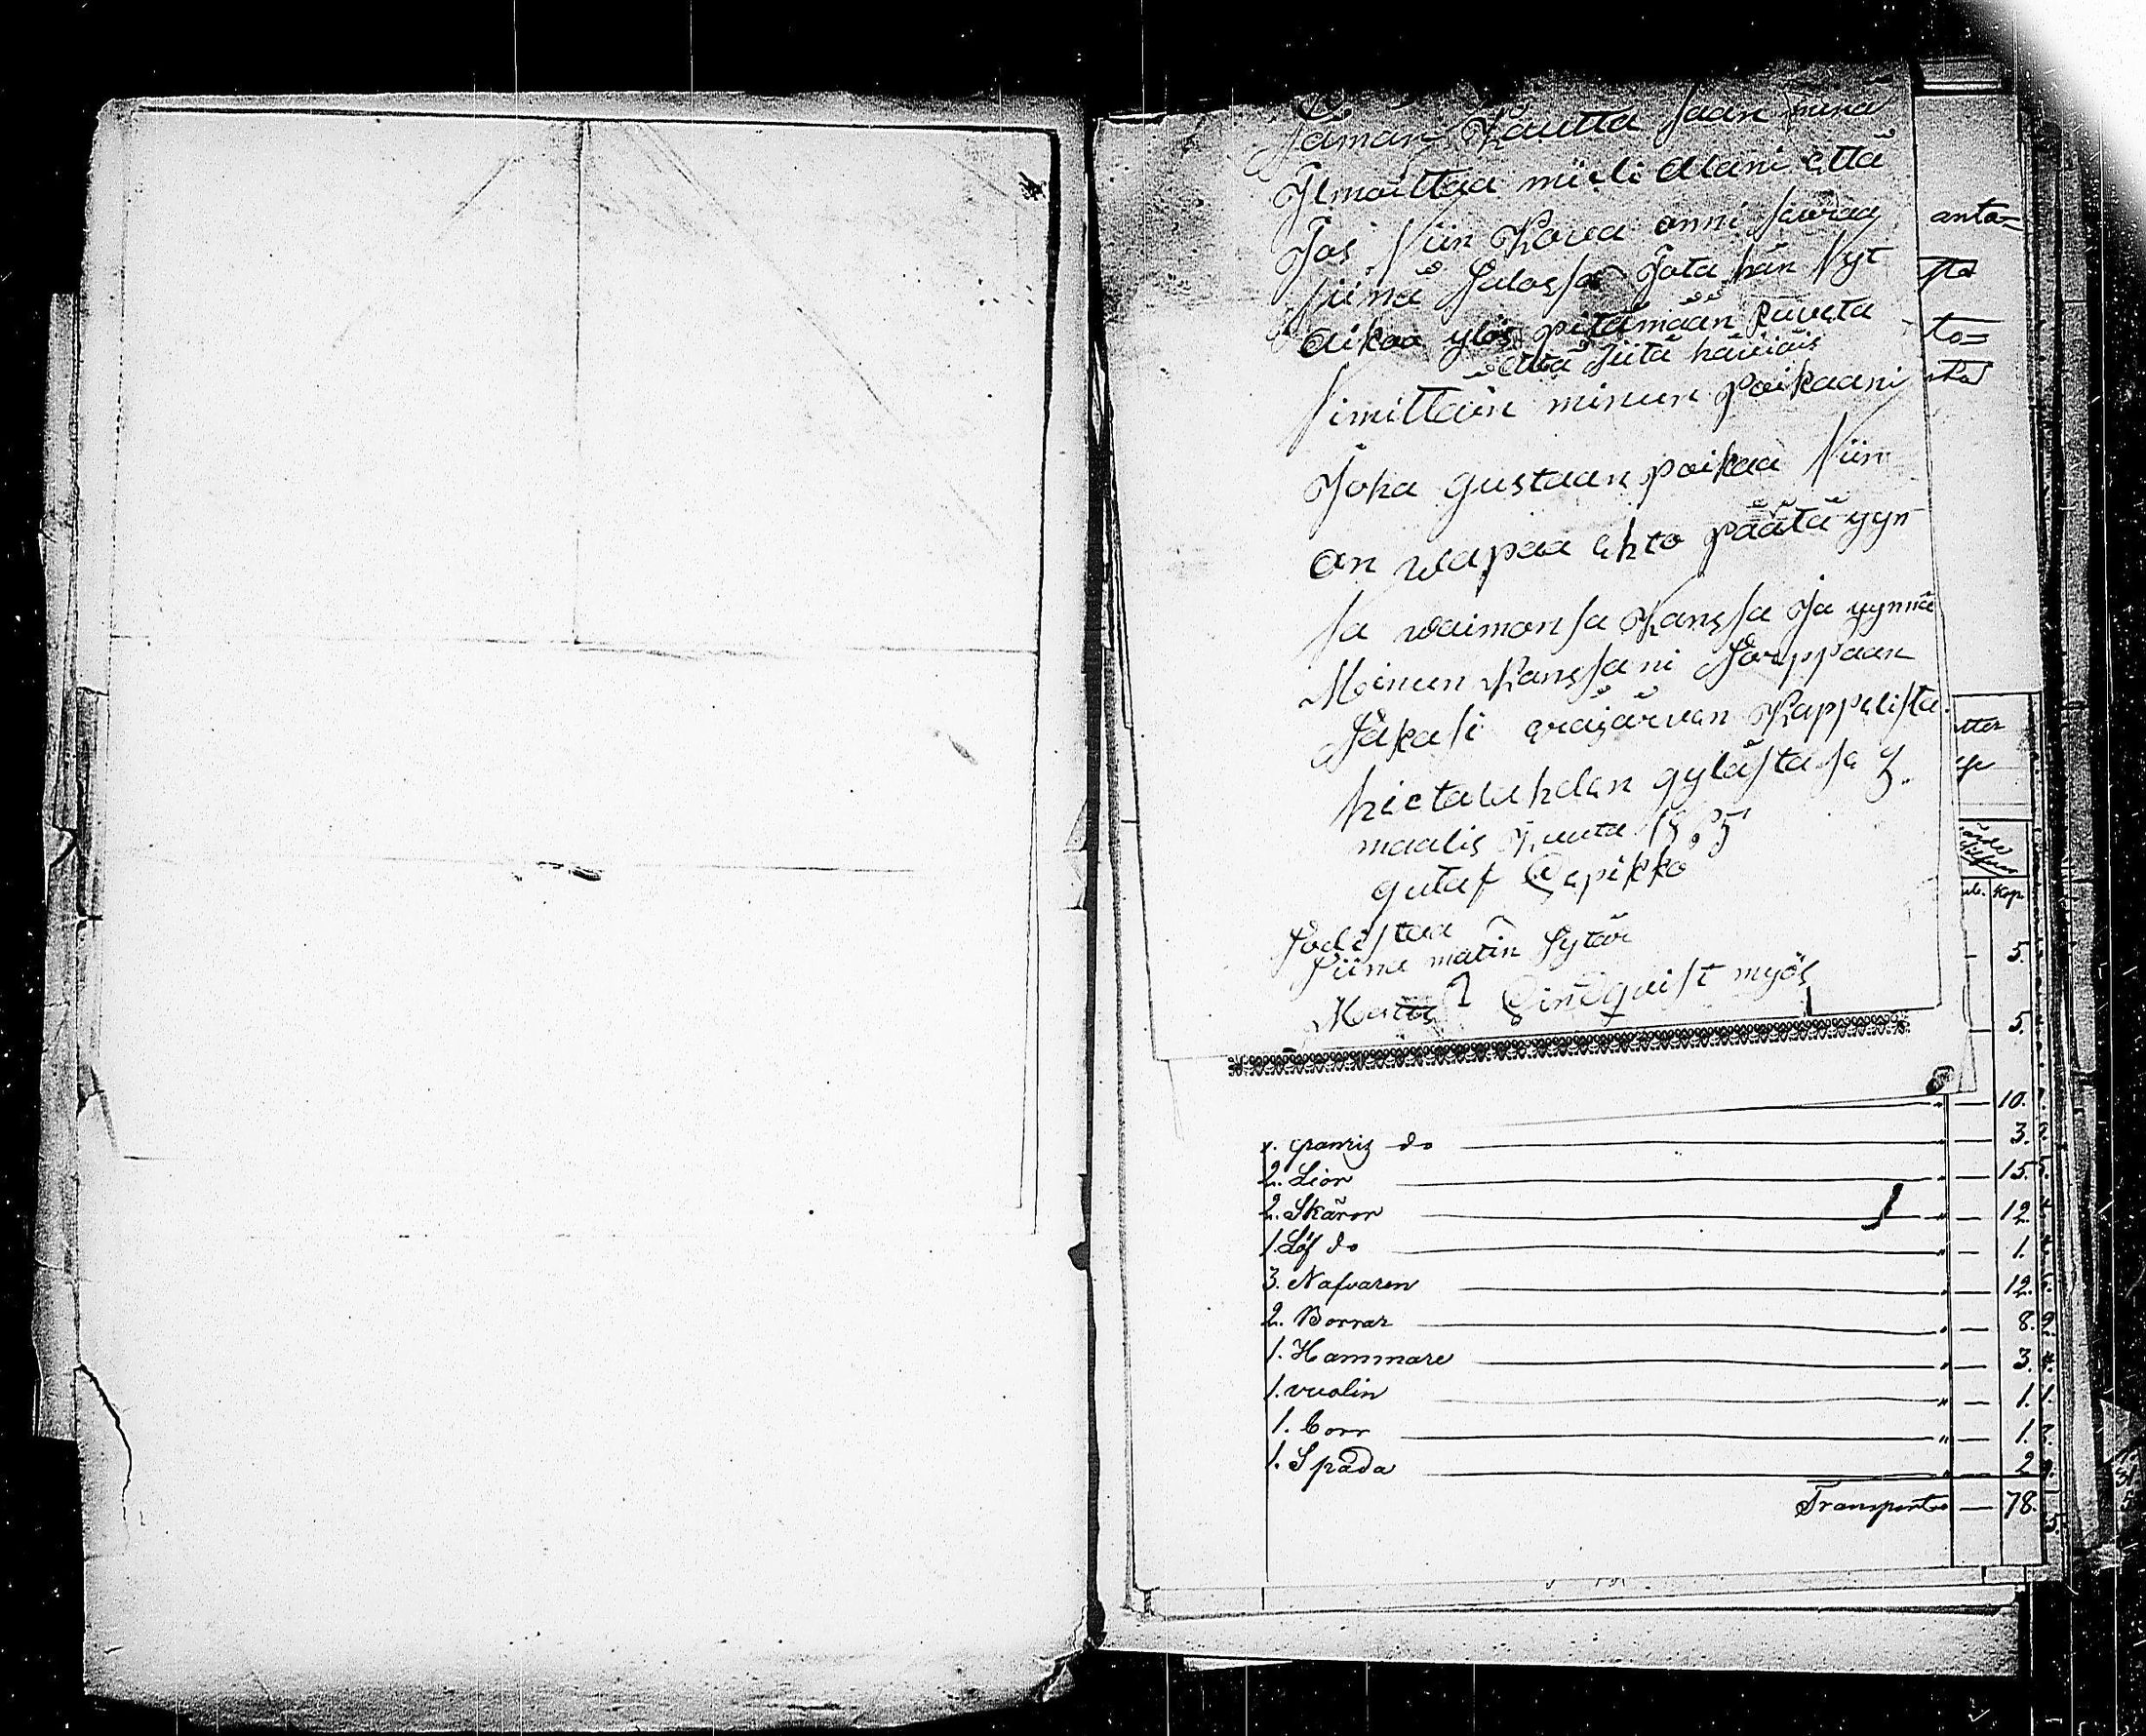 Tämän Kautta saan minä
Ilmoittaa mieli Alani että
Jos Niin Kova onni seuraa
siinä Talossa Jota hän Nyt
aikaa ylös pitämään ruveta
että siitä häviäis
Nimittäin minun Poikaani
Joha gustaan poikaa Niin
on wapaa ehto päätä yyn
sa waimonsa Kanssa Ja yynnä
Minun Kanssani Torppaan
Takasi eräjärven Kappelista
hietalahden gylästä sa 3.
maalis Kuuta
gutaf Lepikko
Todistaa
Stiina matin Tytär
Lindqvist myös
anta=
sta
to=
sta
Kop.
5.
5.
10.
do — " — 3.
2. Lior — " — 15.
2. Skäror — " — 12.
1. Löf do — " — 1.
3. Nafvaren — " — 12.
2. Borrar — " — 8.
1. Hammare — " — 3.
1. vuolin — " — 1.
1. Corr — " — 1.
1. Spada — " — 2
Transport — 78.